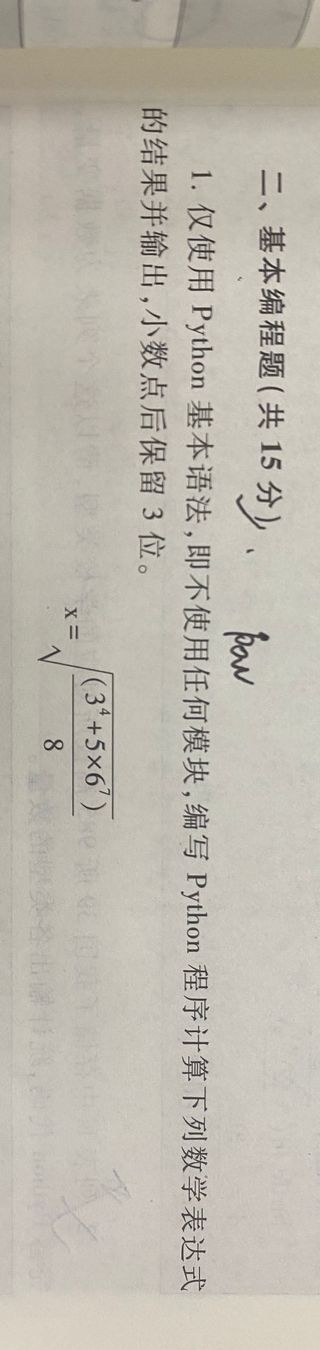 二、基本编程题(共 15 分)
pow
1. 仅使用 Python 基本语法,即不使用任何模块,编写 Python 程序计算下列数学表达式
的结果并输出,小数点后保留 3 位。
x=√((3⁴+5×6⁷)/8)